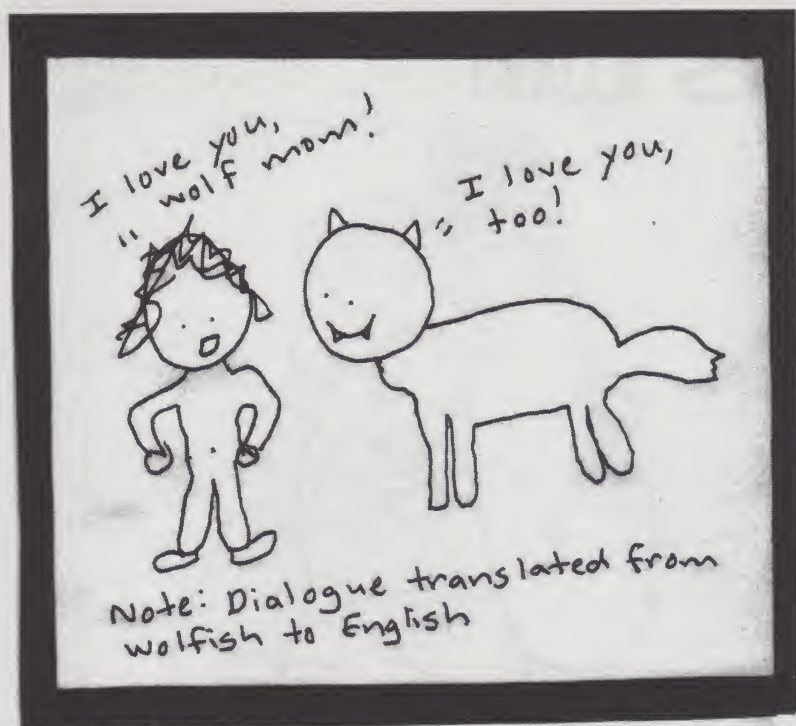 I love you,
wolf mom!
I love you,
too!
Note: Dialogue translated from
wolfish to English